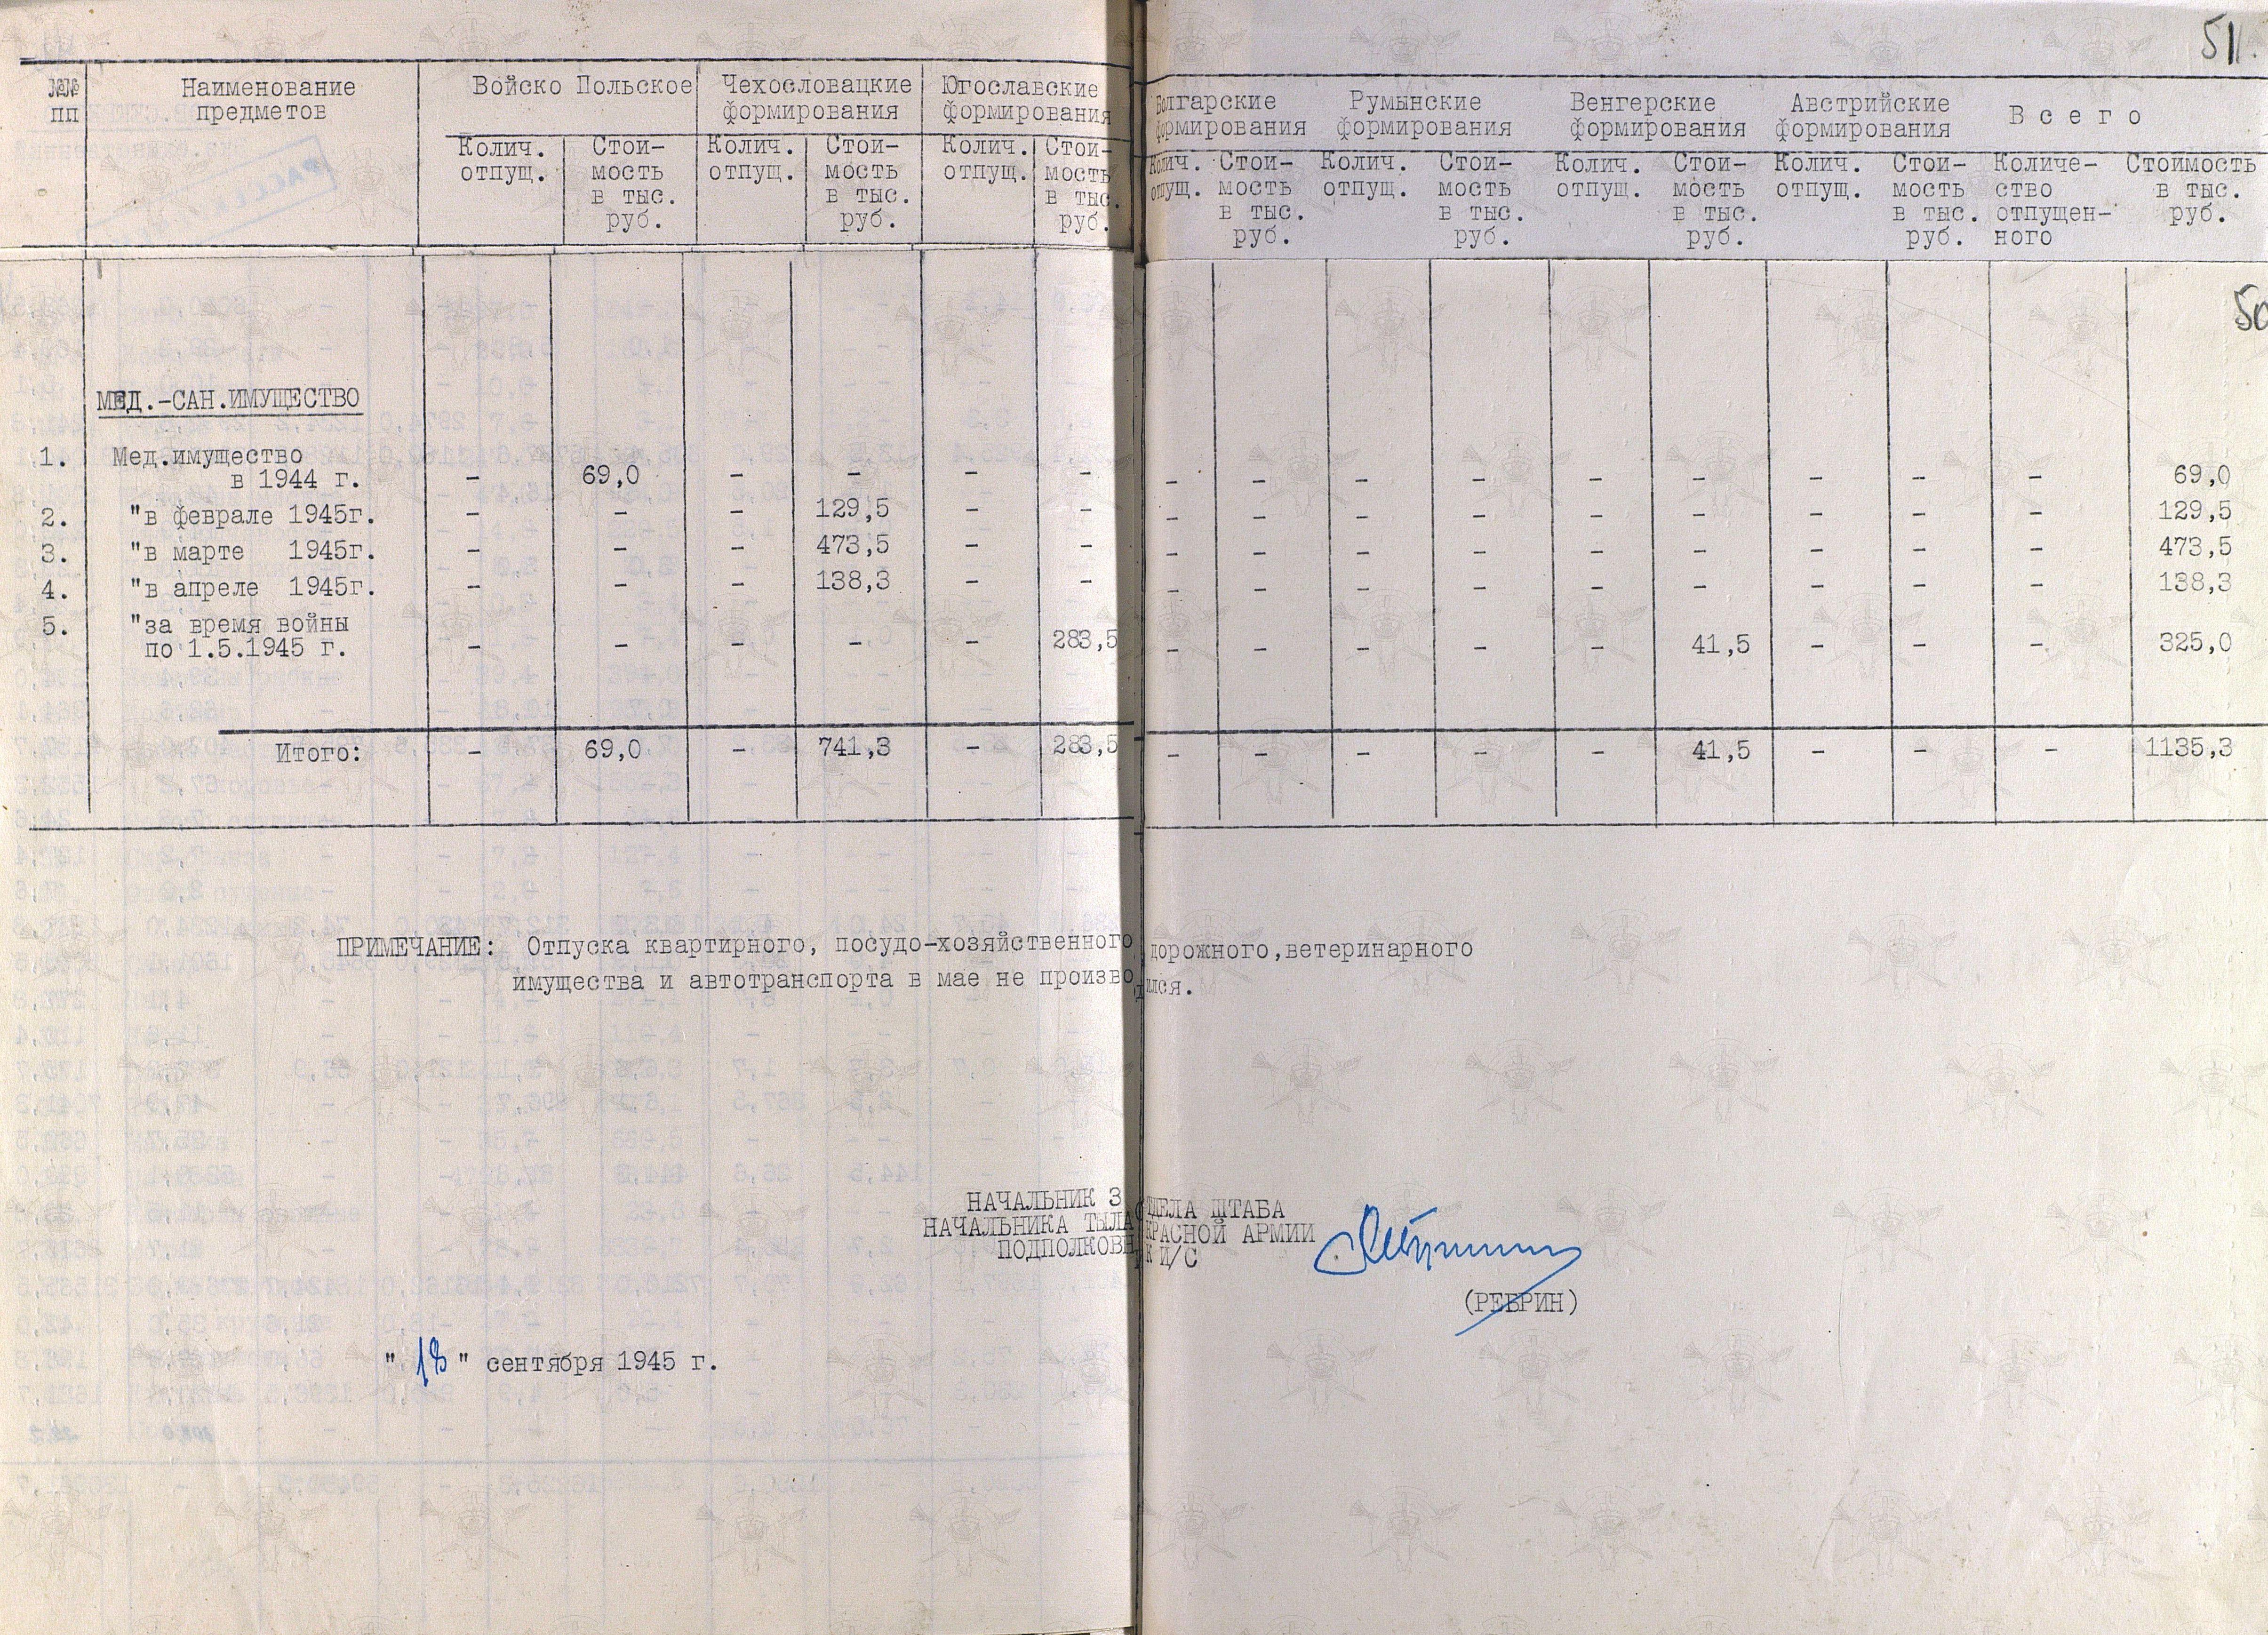 51
№№ Наименование Войско Польское Чехословацкие Югославские Болгарские Румынские Венгерские Австрийские В с е г о
пп предметов формирования формирования формирования формирования формирования формирования
Колич. Стои- Колич. Стои- Колич. Стои- Колич. Стои- Колич. Стои- Колич. Стои- Колич. Стои- Количе- Стоимость
отпущ. мость отпущ. мость отпущ. мость отпущ. мость отпущ. мость отпущ. мость отпущ. мость ство в тыс.
в тыс. в тыс. в тыс. в тыс. в тыс. в тыс. в тыс. отпущен- руб.
руб. руб. руб. руб. руб. руб. руб. ного
50
МЕД.-САН.ИМУЩЕСТВО
1. Мед.имущество
в 1944 г. - 69,0 - - - - - - - - - - - - - 69,0
2. "в феврале 1945г. - - - 129,5 - - - - - - - - - - - 129,5
3. "в марте 1945г. - - - 473,5 - - - - - - - - - - - 473,5
4. "в апреле 1945г. - - - 138,3 - - - - - - - - - - - 138,3
5. "за время войны
по 1.5.1945 г. - - - - - 283,5 - - - - - 41,5 - - - 325,0
Итого: - 69,0 - 741,3 - 283,5 - - - - - 41,5 - - - 1135,3
ПРИМЕЧАНИЕ: Отпуска квартирного, посудо-хозяйственного дорожного,ветеринарного
имущества и автотранспорта в мае не производился.
НАЧАЛЬНИК 3 ОТДЕЛА ШТАБА
НАЧАЛЬНИКА ТЫЛА КРАСНОЙ АРМИИ
ПОДПОЛКОВНИК И/С
(РЕБРИН)
" 18 " сентября 1945 г.